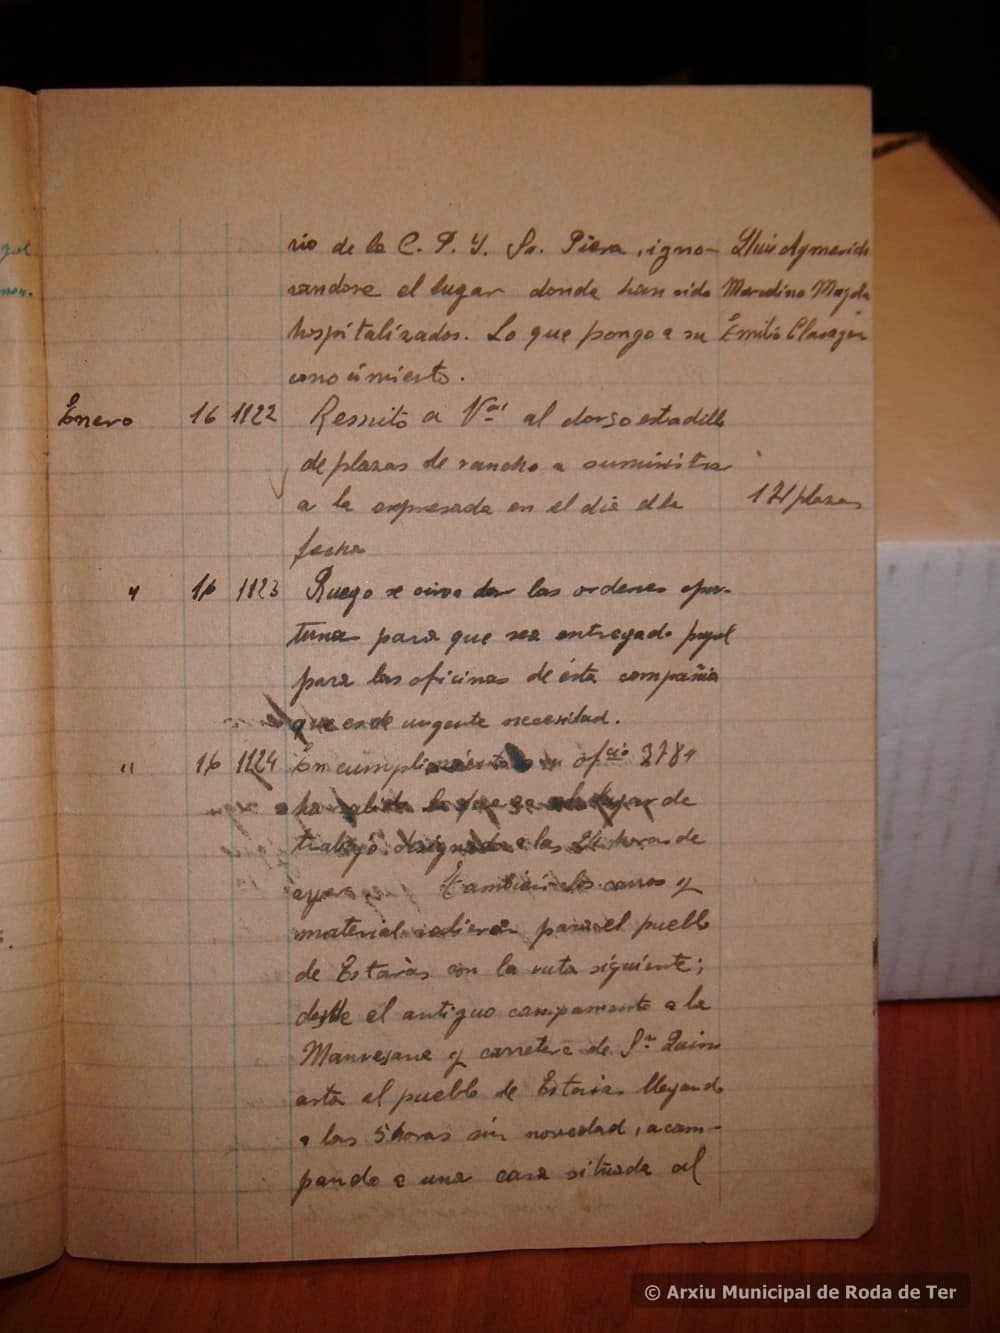 rio de la C. P. Y. Sr. Piera, igno- Lluis Aymerich
randose el lugar donde han sido Marcelino
hospitalizados. Lo que pongo a su Emilio
conocimiento.
Enero 16 1122 Remito a Vd al dorso estadillo
de plazas de rancho a suministrar
a la expresada en el dia de la 121 plazas
fecha
" 16 1123 Ruego se sirva dar las ordenes opor-
tunas para que sea entregado papel
para las oficinas de ésta compañia
que es de urgente necesidad.
" 16 1124 En cumplimiento ofcio 3784
ha salido la fuerza al lugar de
trabajo designado a las 24 horas de
ayer. Tambien los carros y
material salieron para el pueblo
de Estaràs con la ruta siguiente;
desde el antiguo campamento a la
Manresana y carretera de Sn Quim
asta el pueblo de Estaras llegando
a las 5 horas sin novedad, acam-
pando a una casa situada al
gol
© Arxiu Municipal de Roda de Ter